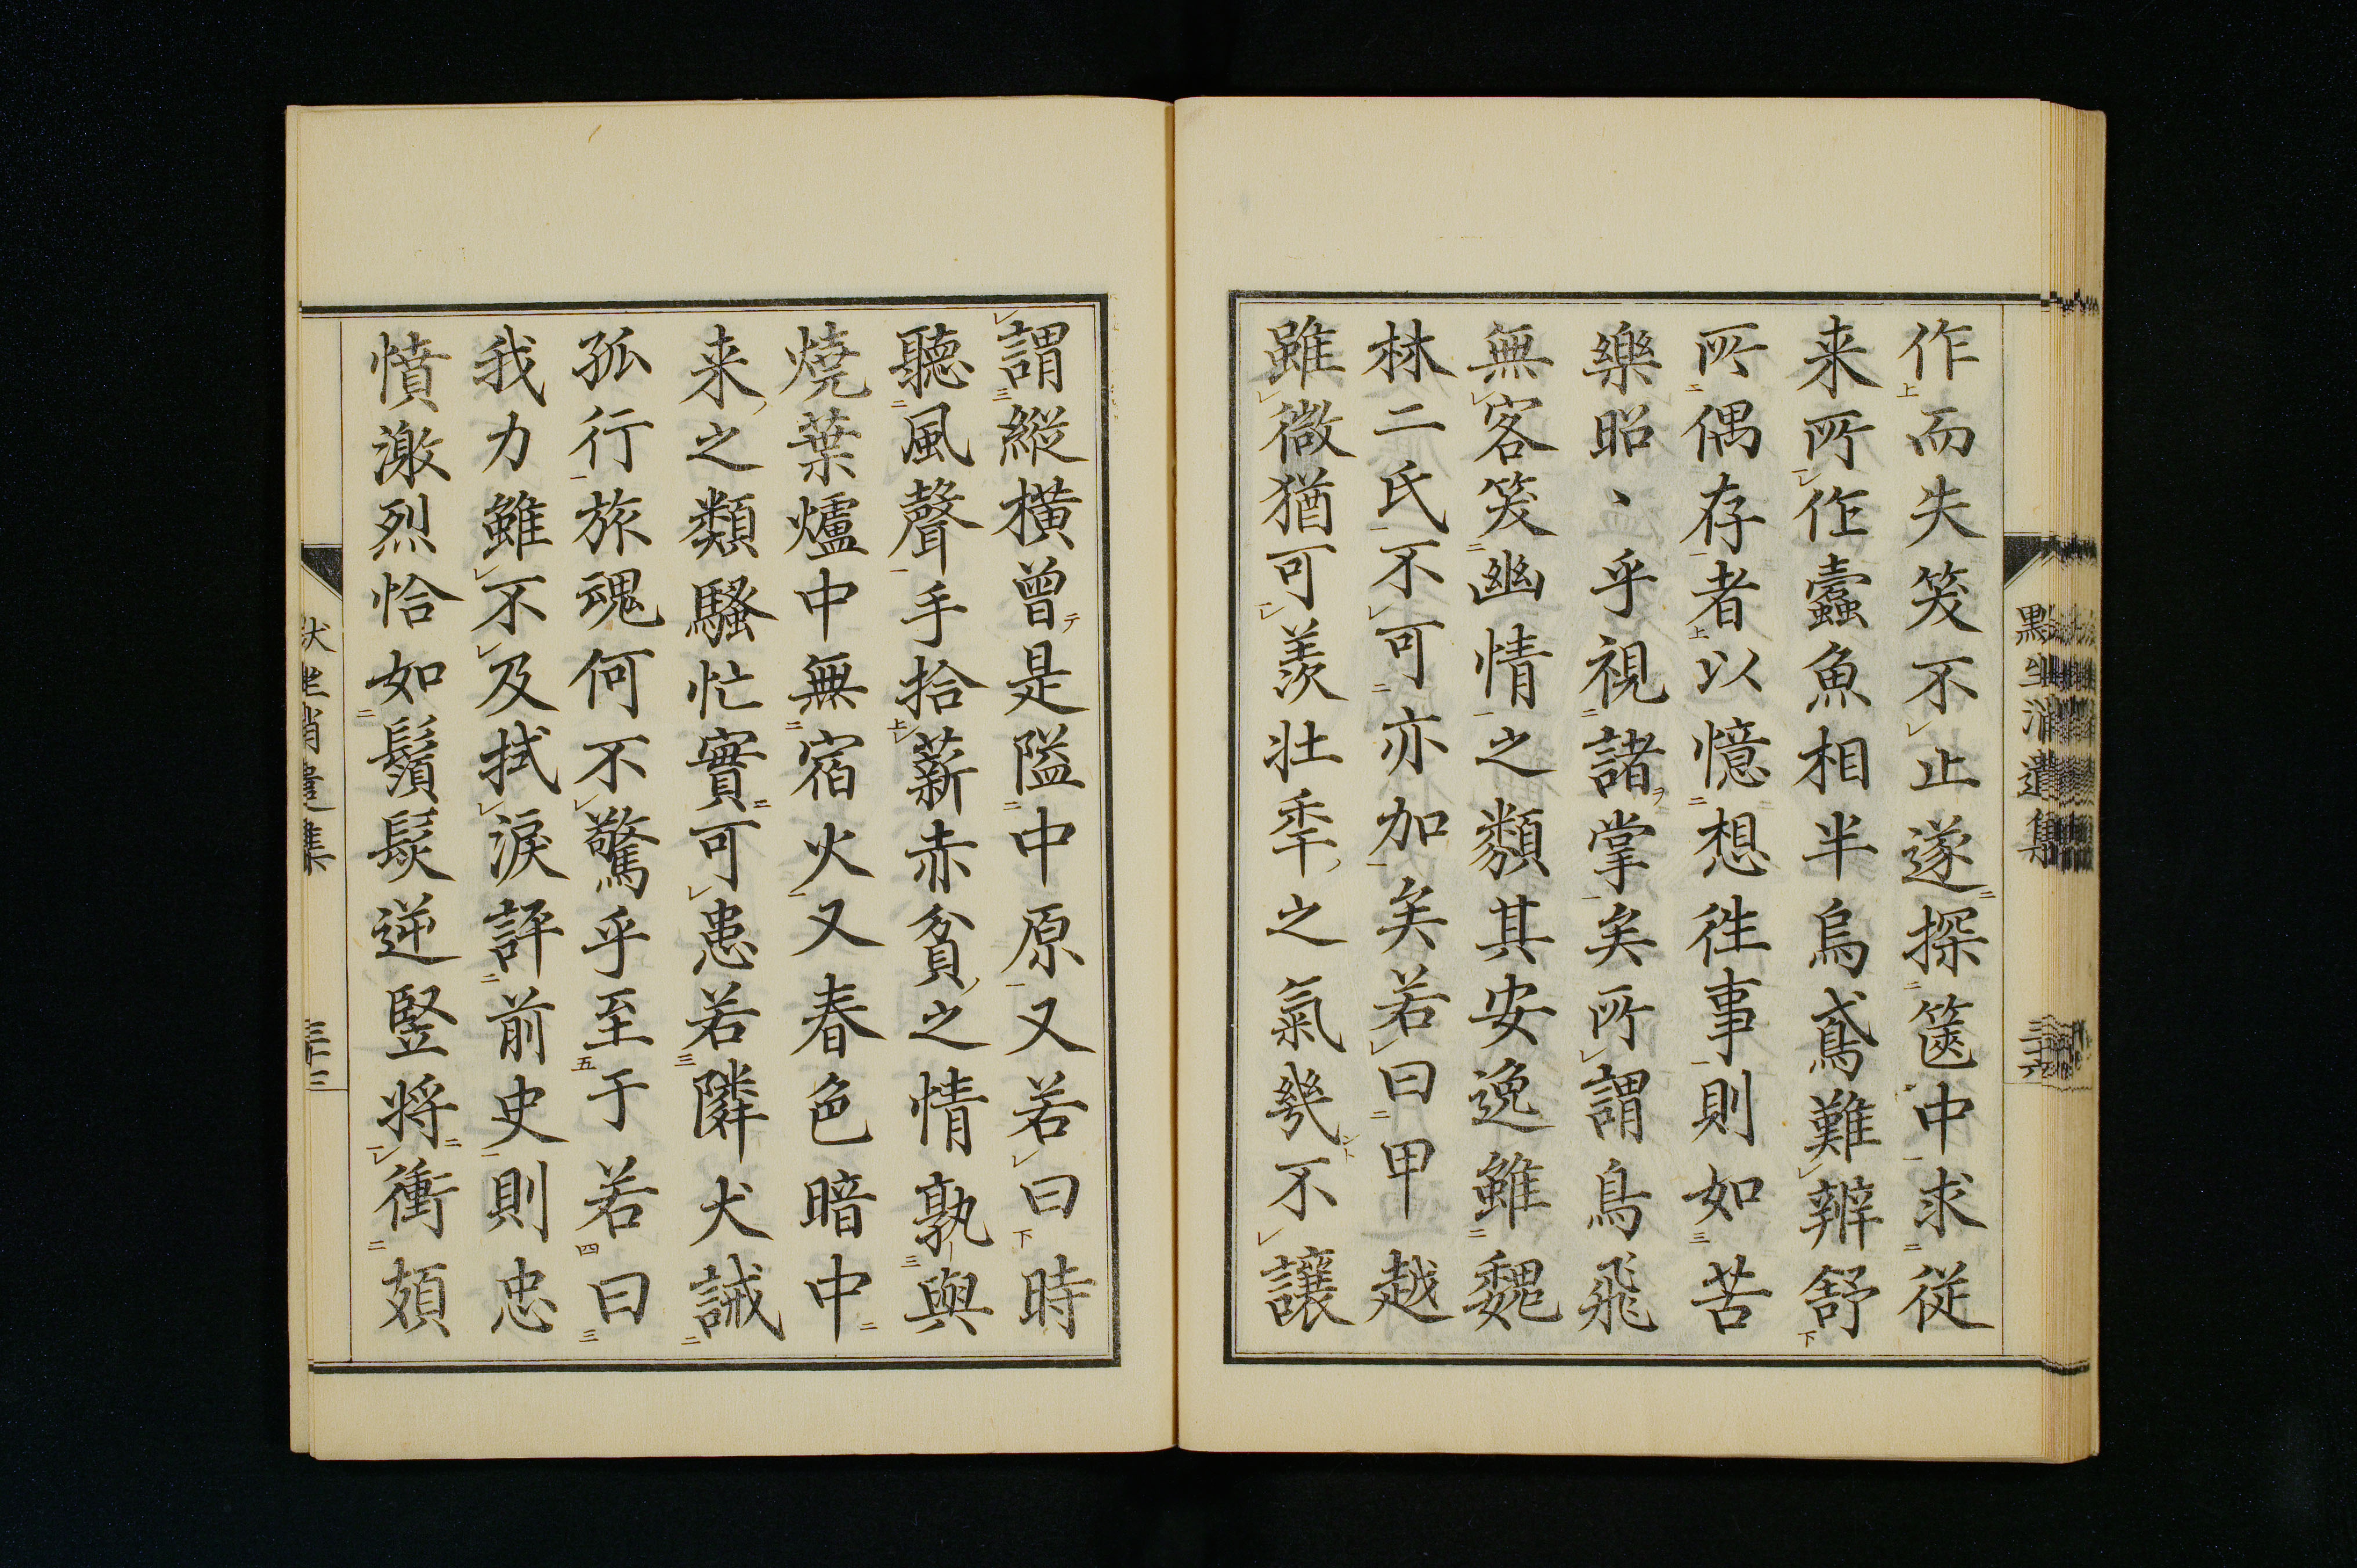 作而失笑不止遂探篋中求従
来所作蠹魚相半烏鳶難辨舒
所偶存者以憶想徃事則如苦
樂昭〻乎視諸掌矣所謂鳥飛
無客笑幽情之類其安逸雖魏
林二氏不可亦加矣若曰甲越
雖微猶可羨壮年之氣幾不讓
謂縦橫曾是隘中原又若曰時
聽風聲手拾薪赤貧之情孰與
燒葉爐中無宿火又春色暗中
来之類騷忙實可患若隣犬誡
孤行旅魂何不驚乎至于若曰
我力雖不及拭淚評前史則忠
憤激烈恰如鬚髮逆竪将衝頬